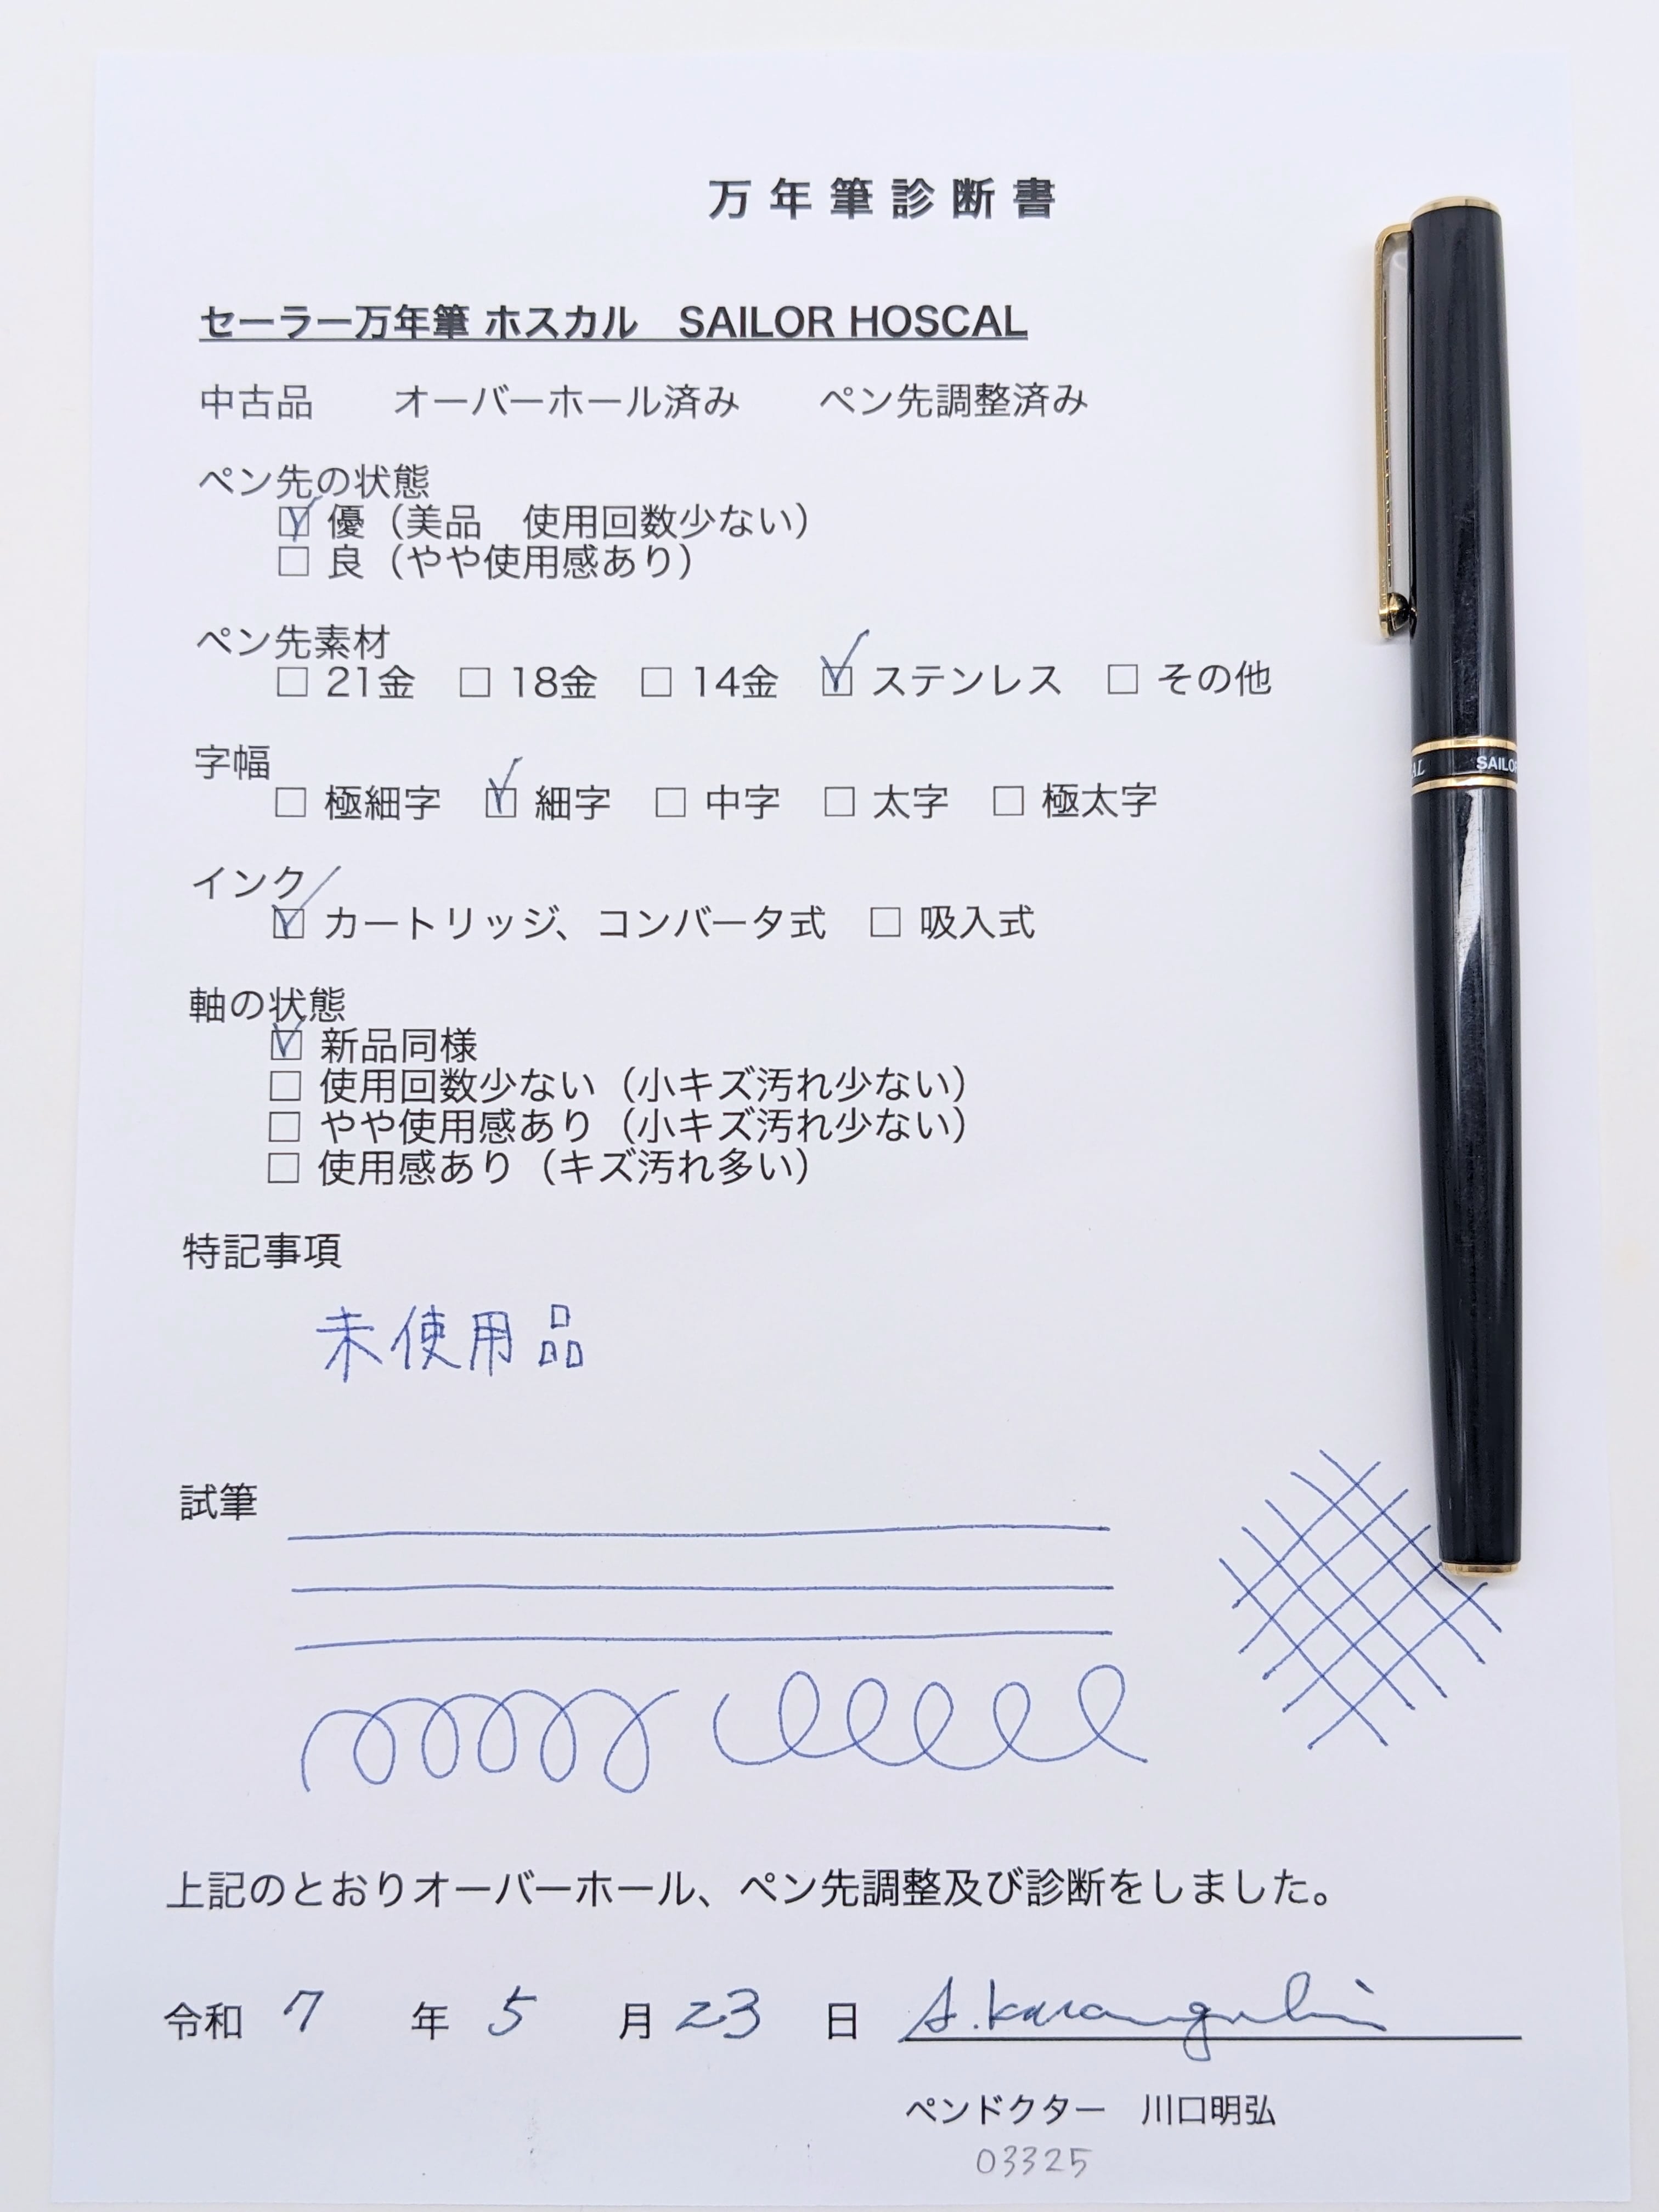 万年筆診断書
セーラー万年筆 ホスカル　SAILOR HOSCAL
中古品　　オーバーホール済み　　ペン先調整済み
ペン先の状態
☑ 優（美品　使用回数少ない）
□ 良（やや使用感あり）
ペン先素材
□ 21金　□ 18金　□ 14金　☑ ステンレス　□ その他
字幅
□ 極細字　☑ 細字　□ 中字　□ 太字　□ 極太字
インク
☑ カートリッジ、コンバータ式　□ 吸入式
軸の状態
☑ 新品同様
□ 使用回数少ない（小キズ汚れ少ない）
□ やや使用感あり（小キズ汚れ少ない）
□ 使用感あり（キズ汚れ多い）
特記事項
未使用品
試筆
上記のとおりオーバーホール、ペン先調整及び診断をしました。
令和 7 年 5 月 23 日
ペンドクター　川口明弘
03325
AL SAILO